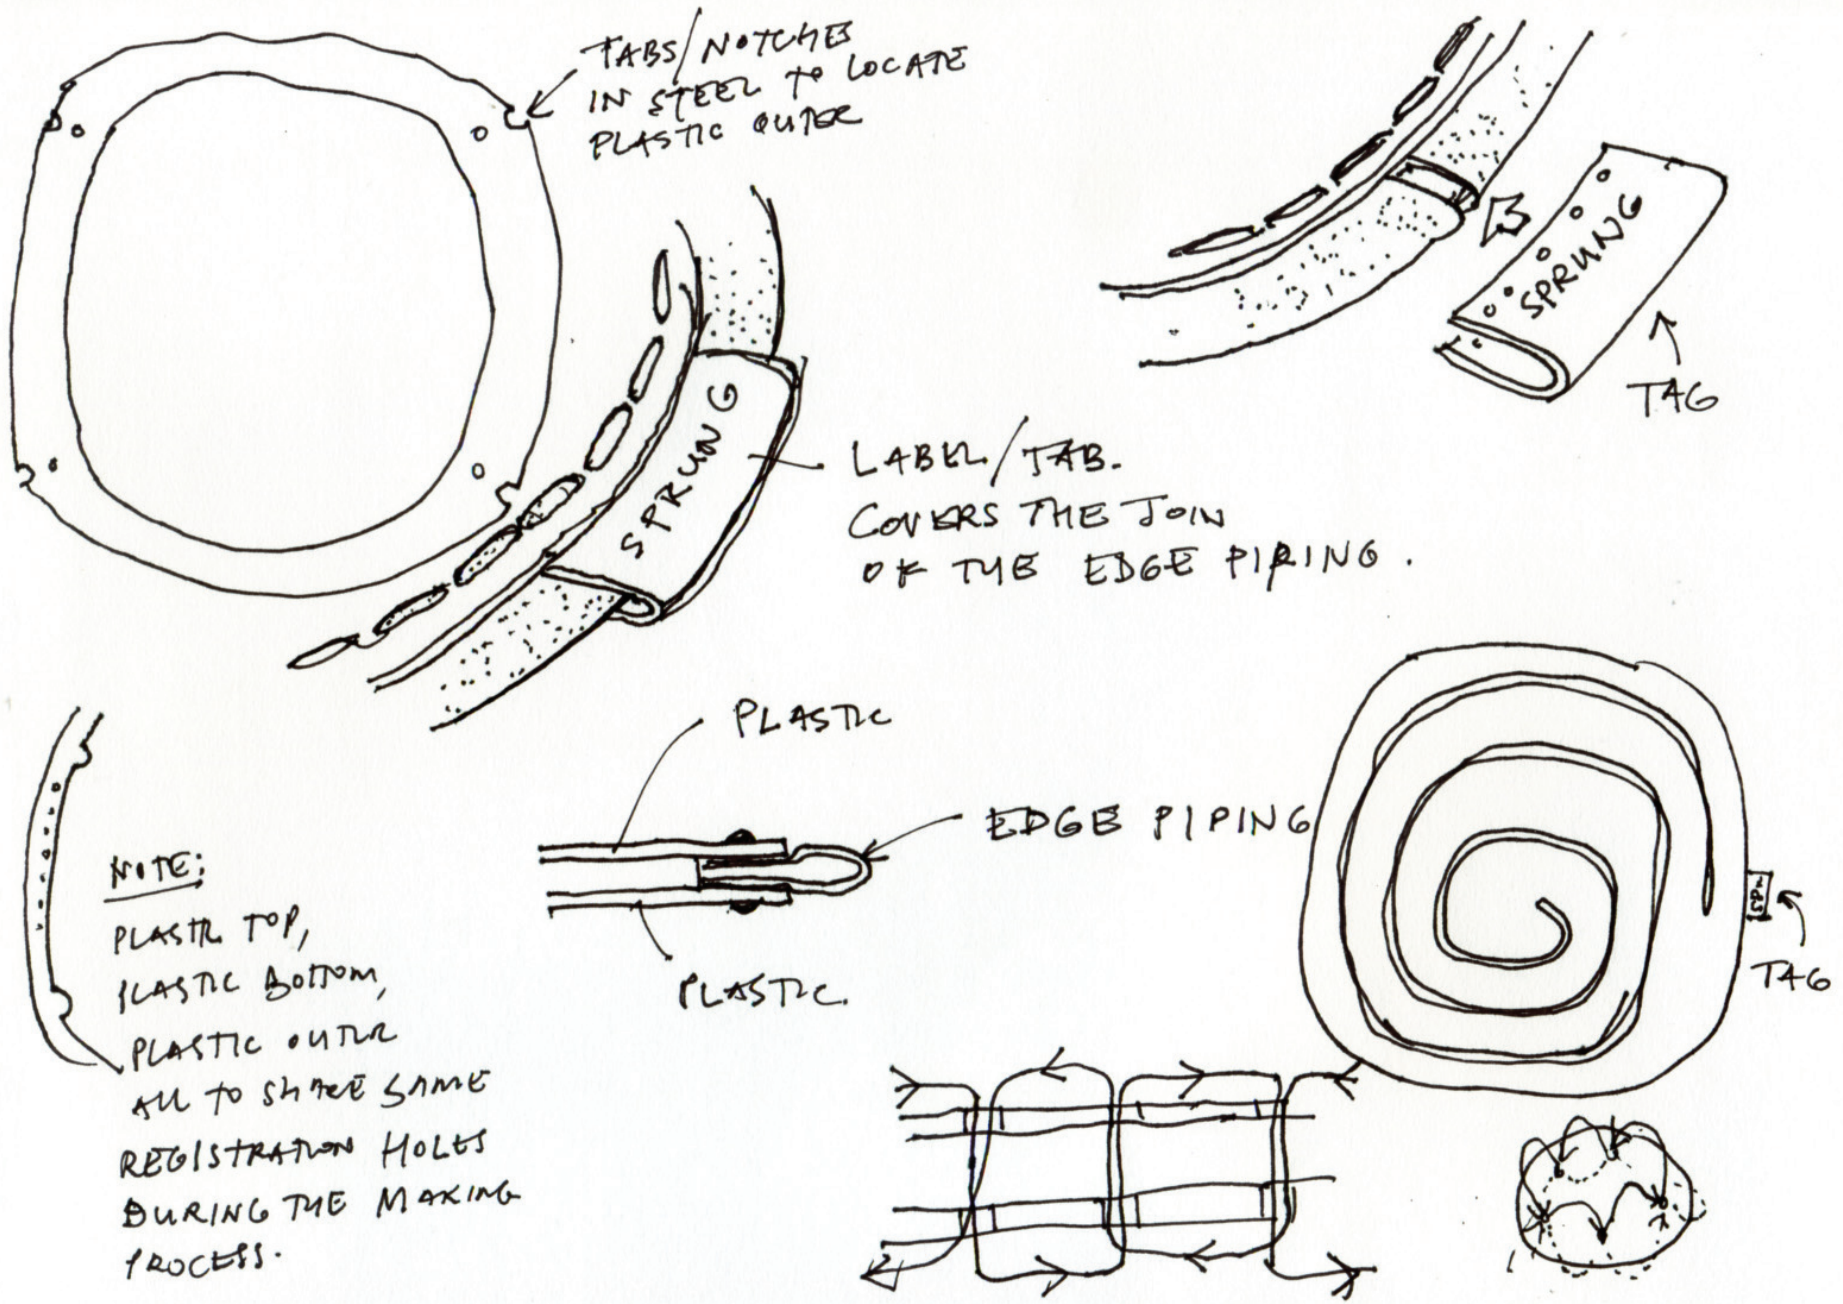 TABS/NOTCHES
IN STEEL TO LOCATE
PLASTIC OUTER
SPRUNG
TAG
SPRUNG
LABEL/TAB.
COVERS THE JOIN
OF THE EDGE PIPING.
PLASTIC
EDGE PIPING
PLASTIC.
TAG
NOTE:
PLASTIC TOP,
PLASTIC BOTTOM,
PLASTIC OUTER
ALL TO SHARE SAME
REGISTRATION HOLES
DURING THE MAKING
PROCESS.